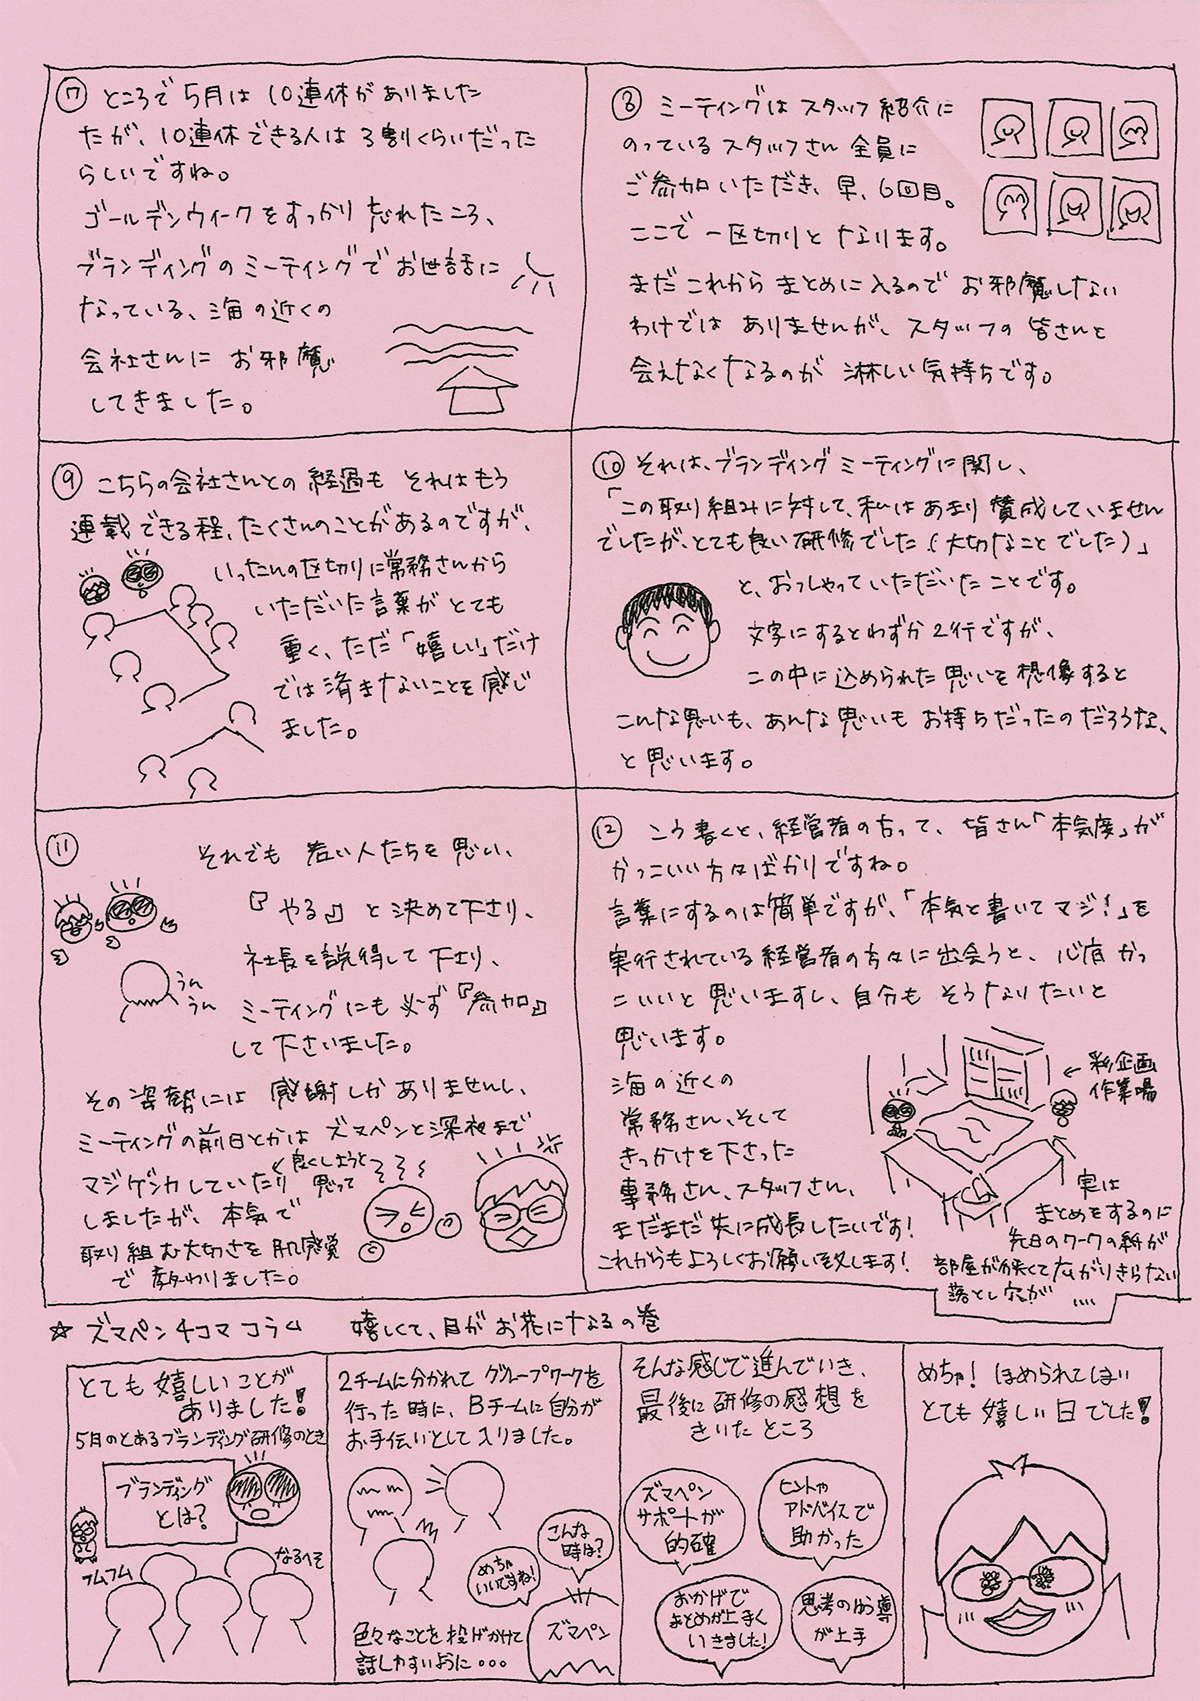 ⑦ ところで 5月は 10連休がありました
たが、10連休できる人は 3割くらいだった
らしいですね。
ゴールデンウィークをすっかり忘れたころ、
ブランディングのミーティングでお世話に
なっている、海の近くの
会社さんに お邪魔
してきました。
⑧ ミーティングは スタッフ紹介に
のっているスタッフさん 全員に
ご参加いただき、早、6回目。
ここで一区切りと なります。
まだこれから まとめに入るので お邪魔しない
わけでは ありませんが、スタッフの 皆さんと
会えなくなるのが 淋しい気持ちです。
⑨ こちらの会社さんとの 経過も それはもう
連載できる程、たくさんのことがあるのですが、
いったんの区切りに常務さんから
いただいた言葉が とても
重く、ただ「嬉しい」だけ
では済まないことを感じ
ました。
⑩ それは、ブランディング ミーティングに関し、
「この取り組みに対して、私は あまり 賛成していません
でしたが、とても良い研修でした(大切なことでした)」
と、おっしゃっていただいたことです。
文字にするとわずか2行ですが、
この中に込められた思いを想像すると
こんな思いも、あんな思いもお持ちだったのだろうな、
と思います。
⑪ それでも 若い人たちを思い、
『やる』と決めて下さり、
社長を説得して下さり、
ミーティングにも必ず『参加』
して下さいました。
うん
うん
その姿勢には 感謝しかありませんし、
ミーティングの前日とかは ズマペンと深夜まで
マジゲンカしていたり
良くしようと
思って
しましたが、本気で
取り組む大切さを 肌感覚
で 教わりました。
⑫ こう書くと、経営者の方って、皆さん「本気度」が
かっこいい方々ばかりですね。
言葉にするのは簡単ですが、「本気と書いてマジ!」を
実行されている経営者の方々に出会うと、心底かっ
こいいと思いますし、自分も そうなりたいと
思います。
海の近くの
常務さん、そして
きっかけを下さった
専務さん、スタッフさん、
まだまだ共に成長したいです!
これからもよろしくお願い致します!
← 彩企画
作業場
実は
まとめをするのに
先日のワークの紙が
部屋が狭くて広がりきらない
落とし穴が ....
☆ ズマペン4コマコラム 嬉しくて、目がお花になるの巻
とても嬉しいことが
ありました!
5月のとあるブランディング研修のとき
ブランディング
とは?
フムフム
なるへそ
2チームに分かれて グループワークを
行った時に、Bチームに自分が
お手伝いとして入りました。
こんな
時は?
めちゃ
いいですね!
ズマペン
色々なことを投げかけて
話しやすいように・・・
そんな感じで進んでいき、
最後に研修の感想を
きいたところ
ズマペン
サポートが
的確
ヒントや
アドバイスで
助かった
おかげで
まとめが上手く
いきました!
思考のゆう導
が上手
めちゃ!ほめられてしまい
とても嬉しい日でした!